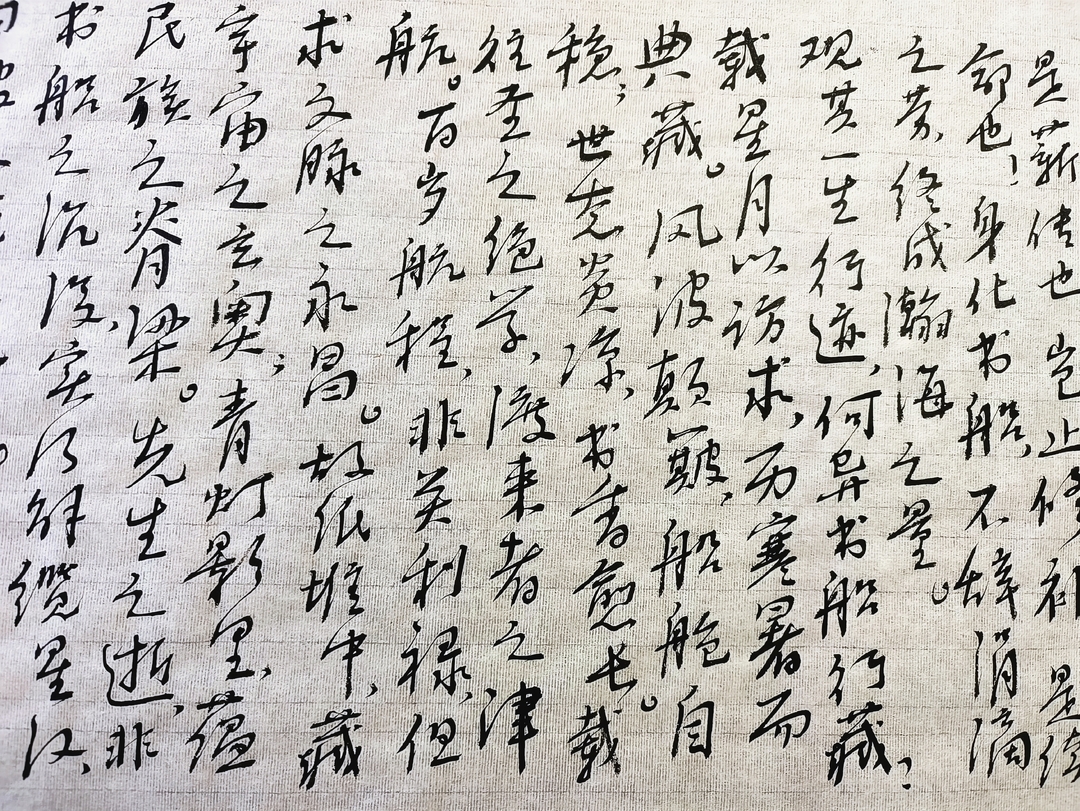 是薪传也岂止修补是续
命也！身化书船，不辞涓滴
之劳，终成瀚海之量。
观其一生行迹，何异书船行藏？
载星月以访求，历寒暑而
典藏。风波颠簸，船舱自
稳；世态炎凉，书香愈长。载
往圣之绝学，渡来者之津
航。百岁航程，非关利禄，但
求文脉之永昌。故纸堆中，藏
宇宙之玄奥；青灯影里，蕴
民族之脊梁。先生之逝，非
书船之沉没，实乃解缆星汉，